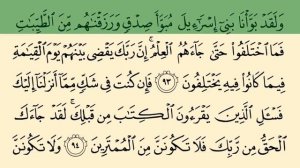 وَلَقَدْ بَوَّأْنَا بَنِىٓ إِسْرَٰٓءِيلَ مُبَوَّأَ صِدْقٍ وَرَزَقْنَٰهُم مِّنَ ٱلطَّيِّبَٰتِ
فَمَا ٱخْتَلَفُوا۟ حَتَّىٰ جَآءَهُمُ ٱلْعِلْمُ ۚ إِنَّ رَبَّكَ يَقْضِى بَيْنَهُمْ يَوْمَ ٱلْقِيَٰمَةِ
فِيمَا كَانُوا۟ فِيهِ يَخْتَلِفُونَ ٩٣ فَإِن كُنتَ فِى شَكٍّ مِّمَّآ أَنزَلْنَآ إِلَيْكَ
فَسْـَٔلِ ٱلَّذِينَ يَقْرَءُونَ ٱلْكِتَٰبَ مِن قَبْلِكَ ۚ لَقَدْ جَآءَكَ
ٱلْحَقُّ مِن رَّبِّكَ فَلَا تَكُونَنَّ مِنَ ٱلْمُمْتَرِينَ ٩٤ وَلَا تَكُونَنَّ